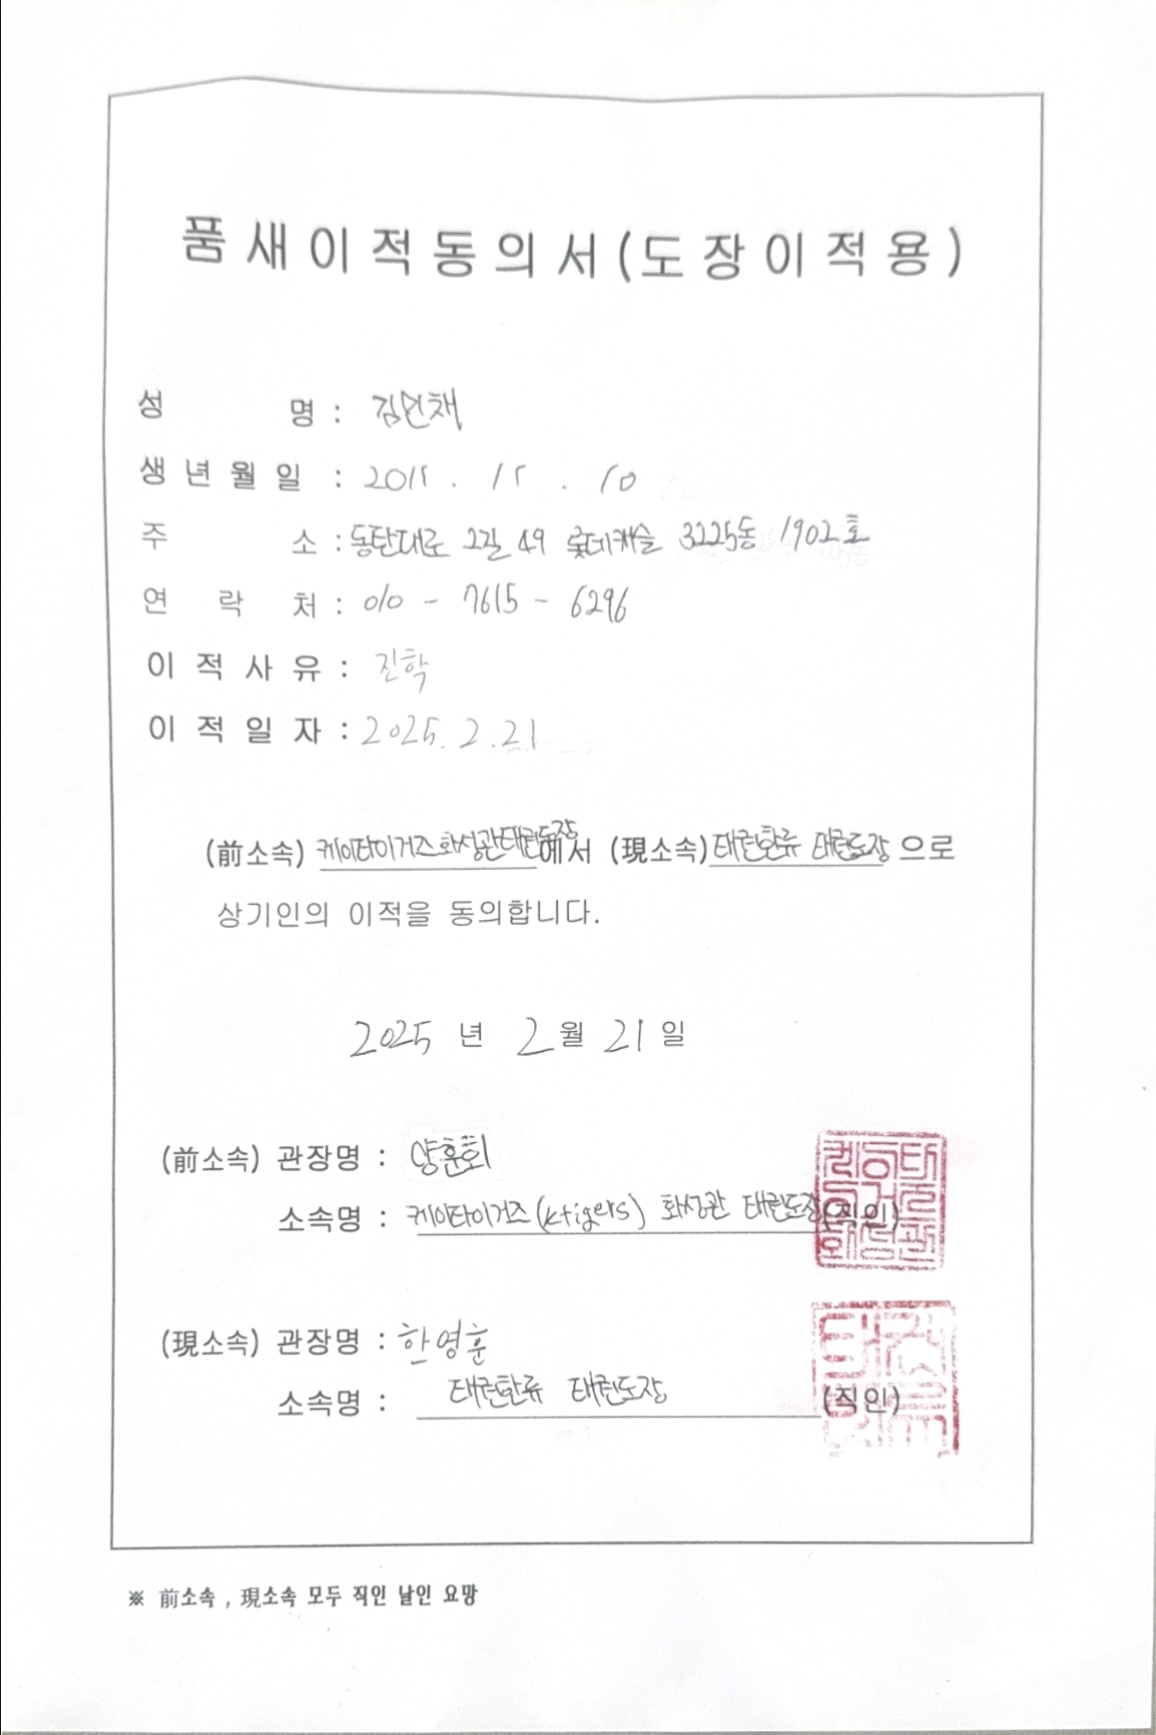 품새이적동의서(도장이적용)
성 명 : 김민채
생년월일 : 2011. 11. 10
주 소 : 동탄대로 2길 49 롯데캐슬 3225동 1902호
연 락 처 : 010 - 7615 - 6296
이적사유 : 진학
이적일자 : 2025. 2. 21
(前소속) 케이타이거즈 화성관 태권도장에서 (現소속) 태권한류 태권도장으로
상기인의 이적을 동의합니다.
2025 년 2 월 21 일
(前소속) 관장명 : 양훈회
소속명 : 케이타이거즈 (ktigers) 화성관 태권도장 (직인)
(現소속) 관장명 : 한영훈
소속명 : 태권한류 태권도장 (직인)
※ 前소속 , 現소속 모두 직인 날인 요망